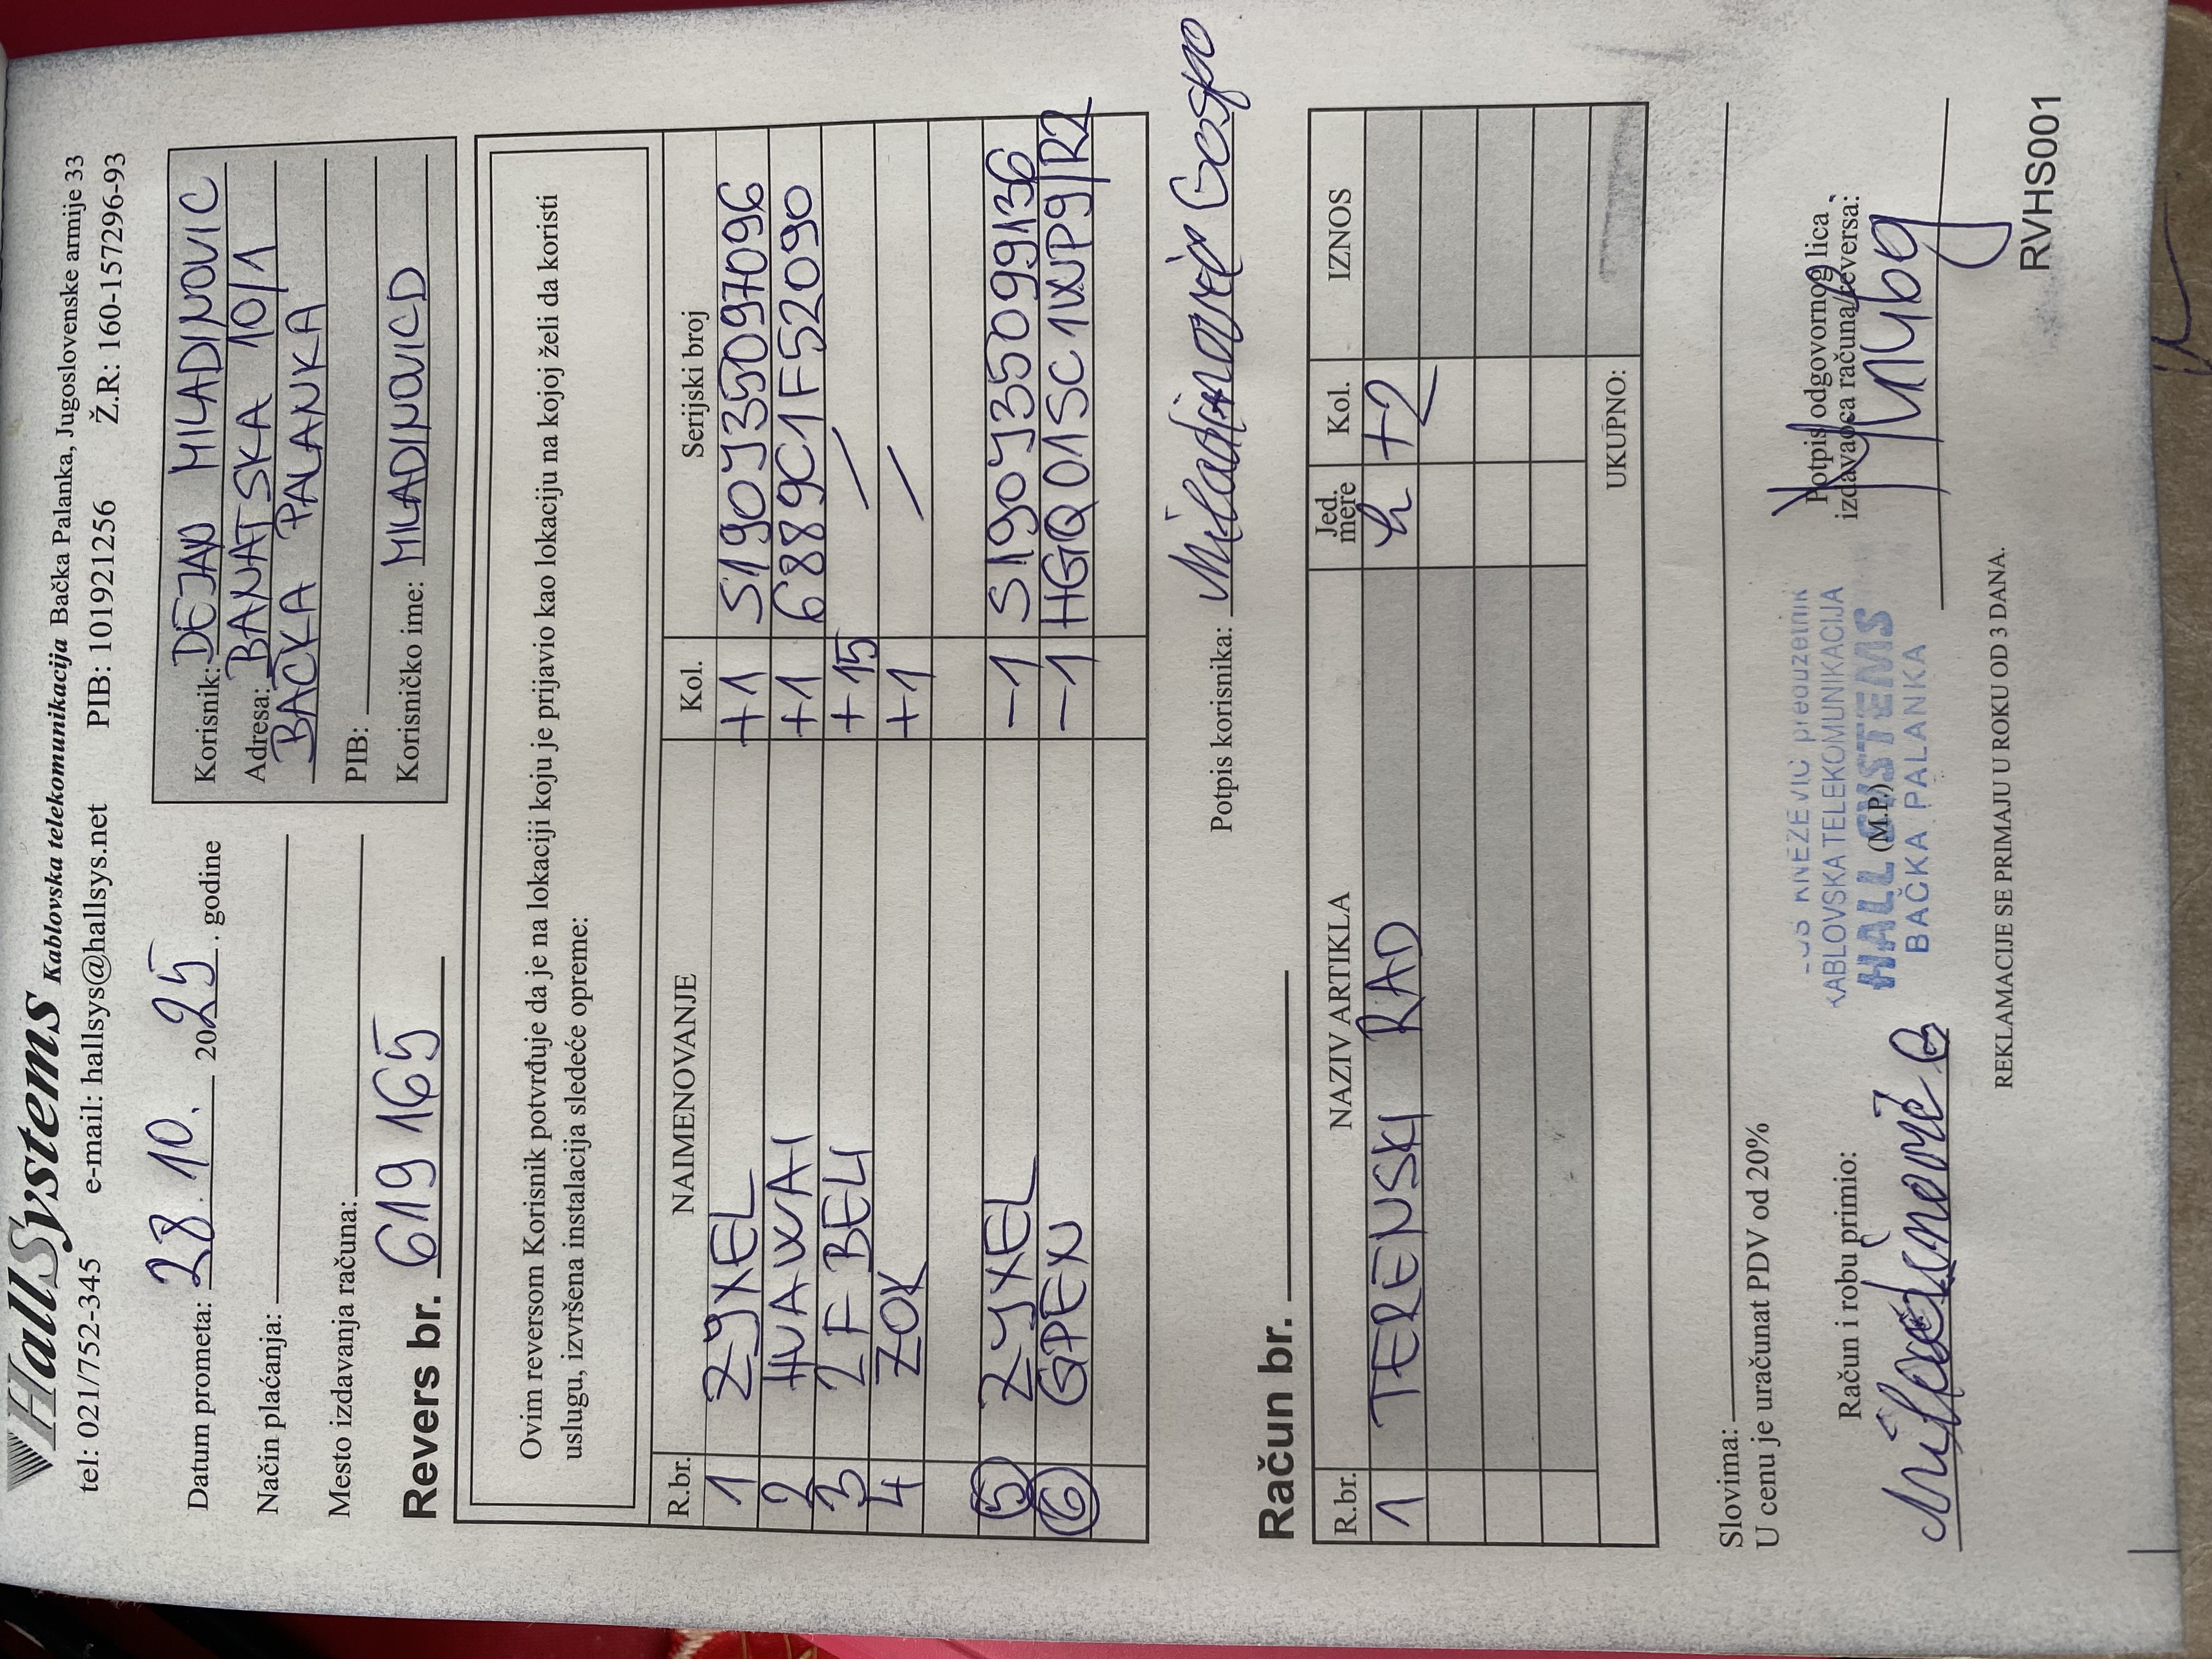 HallSystems Kablovska telekomunikacija Bačka Palanka, Jugoslovenske armije 33
tel: 021/752-345 e-mail: hallsys@hallsys.net PIB: 101921256 Ž.R: 160-157296-93
Datum prometa: 28. 10. 2025. godine
Način plaćanja:
Mesto izdavanja računa:
Revers br. 619 165
Korisnik: DEJAN MILADINOVIC
Adresa: BANATSKA 10/1
BACKA PALANKA
PIB:
Korisničko ime: MILADINOVICD
Ovim reversom Korisnik potvrđuje da je na lokaciji koju je prijavio kao lokaciju na kojoj želi da koristi
uslugu, izvršena instalacija sledeće opreme:
R.br. NAIMENOVANJE Kol. Serijski broj
1 ZYXEL +1 S190J35097096
2 HUAWAI +1 6889C1F52090
3 2F BELI +15 /
4 ZOK +1 /
5 ZYXEL -1 S190J35099136
6 GPEN -1 HGQ01SC1WP9/R2
Potpis korisnika: Miladinović Gospo
Račun br.
R.br. NAZIV ARTIKLA Jed. mere Kol. IZNOS
1 TERENSKI RAD h +2
UKUPNO:
Slovima:
U cenu je uračunat PDV od 20%
Račun i robu primio:
Miladinović G
(M.P.)
KNEŽEVIĆ preduzetnik
KABLOVSKA TELEKOMUNIKACIJA
HALL SYSTEMS
BAČKA PALANKA
Potpis odgovornog lica
izdavaoca računa/reversa:
REKLAMACIJE SE PRIMAJU U ROKU OD 3 DANA.
RVHS001